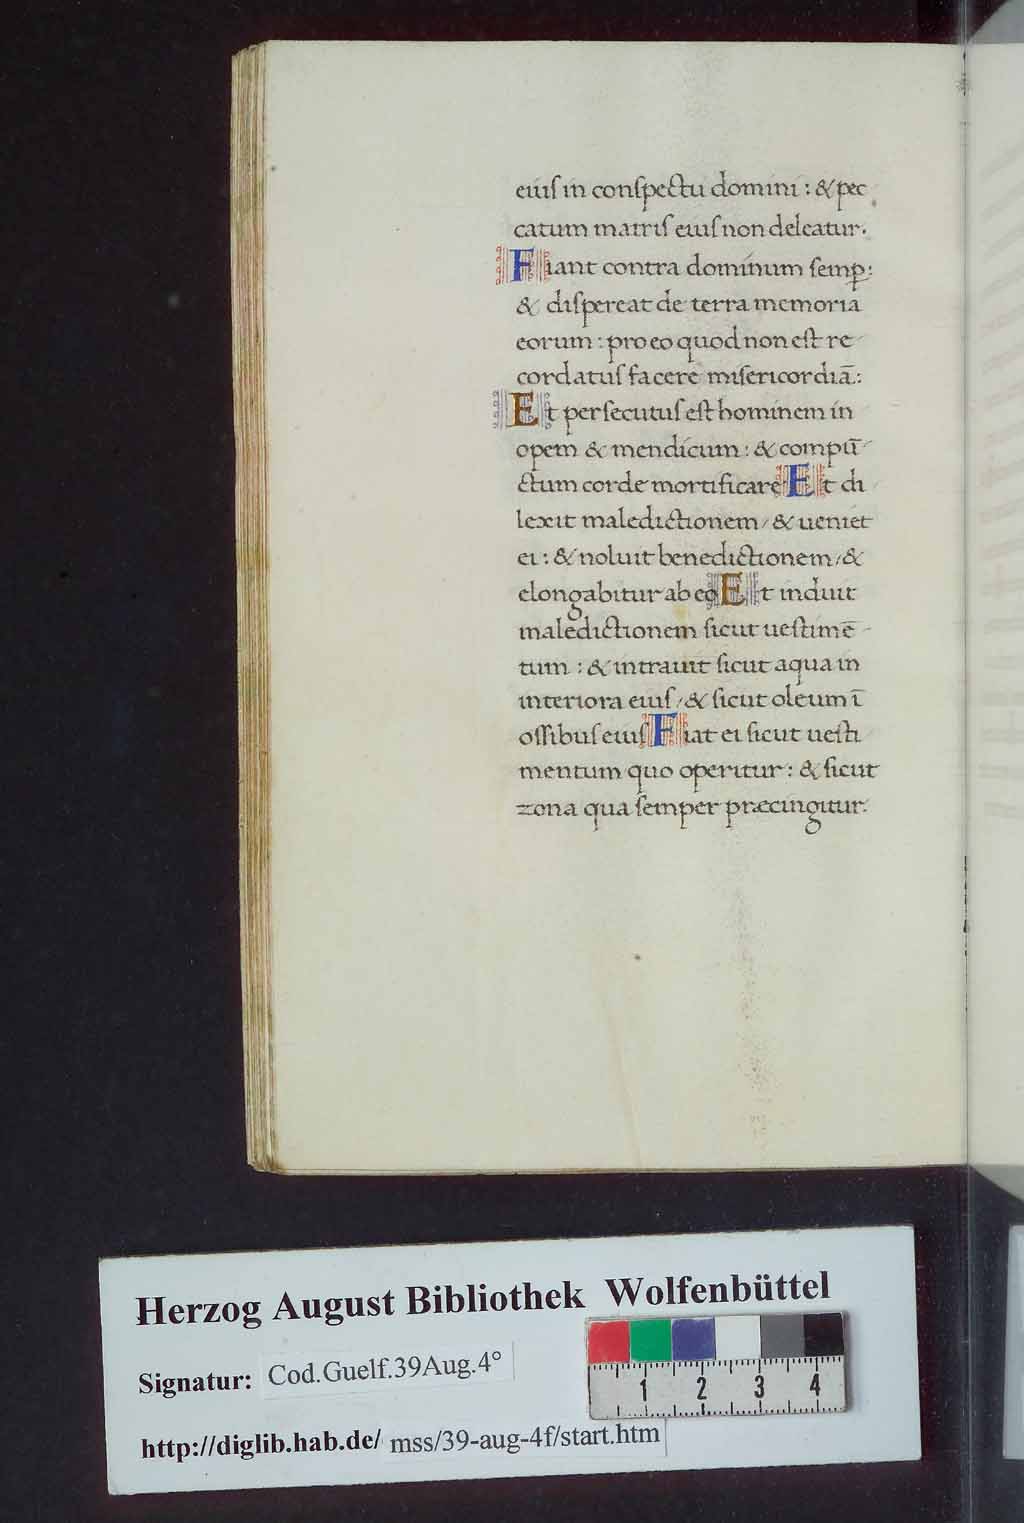 eiuſ in conſpectu domini : & pec
catum matriſ eiuſ non deleatur.
Fiant contra dominum ſemꝑ:
& diſpereat de terra memoria
eorum : pro eo quod non eſt re
cordatuſ facere miſericordiā:
Et perſecutuſ eſt hominem in
opem & mendicum : & compū
ctum corde mortificare Et di
lexit maledictionem / & ueniet
ei : & noluit benedictionem / &
elongabitur ab eo Et induit
maledictionem ſicut ueſtimē
tum : & intrauit ſicut aqua in
interiora eiuſ / & ſicut oleum ī
oſſibuſ eiuſ Fiat ei ſicut ueſti
mentum quo operitur : & ſicut
zona qua ſemper præcingitur.
Herzog August Bibliothek Wolfenbüttel
Signatur: Cod.Guelf.39Aug.4°
http://diglib.hab.de/ mss/39-aug-4f/start.htm
1 2 3 4